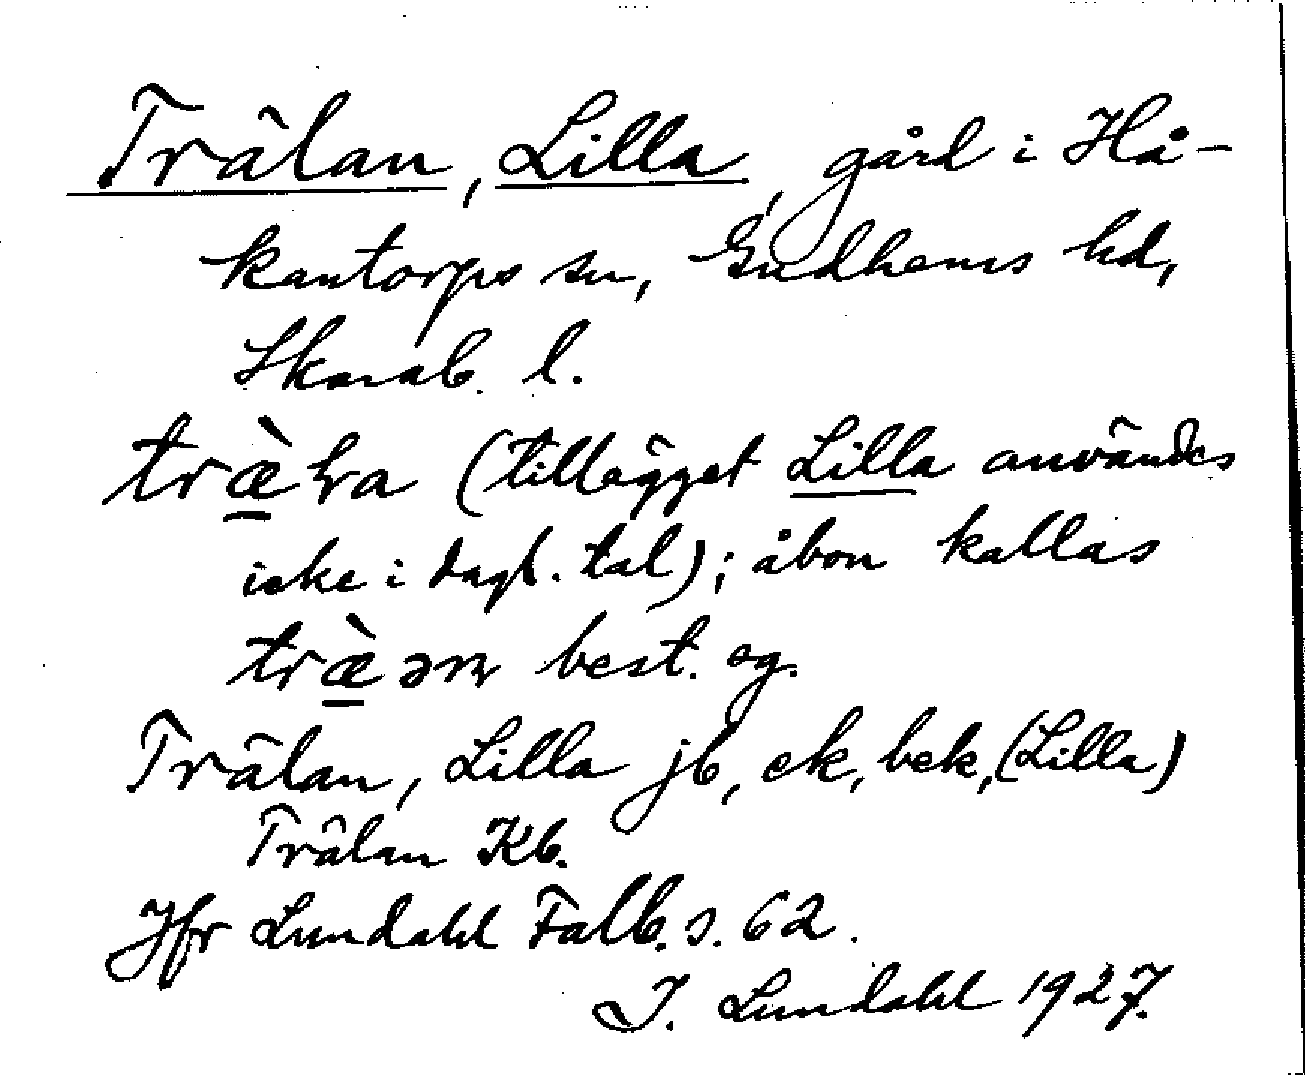 Trälan, Lilla, gård i Hå-
kantorps sn, Gudhems hd,
Skarab. l.
træ̀ɽa (tillägget Lilla användes
icke i dagl. tal); åbon kallas
træ̀ən best. sg.
Trälan, Lilla jb, ek, bek, (Lilla)
Trälan Kb.
Jfr Lundahl Falb. s. 62.
I. Lundahl 1927.